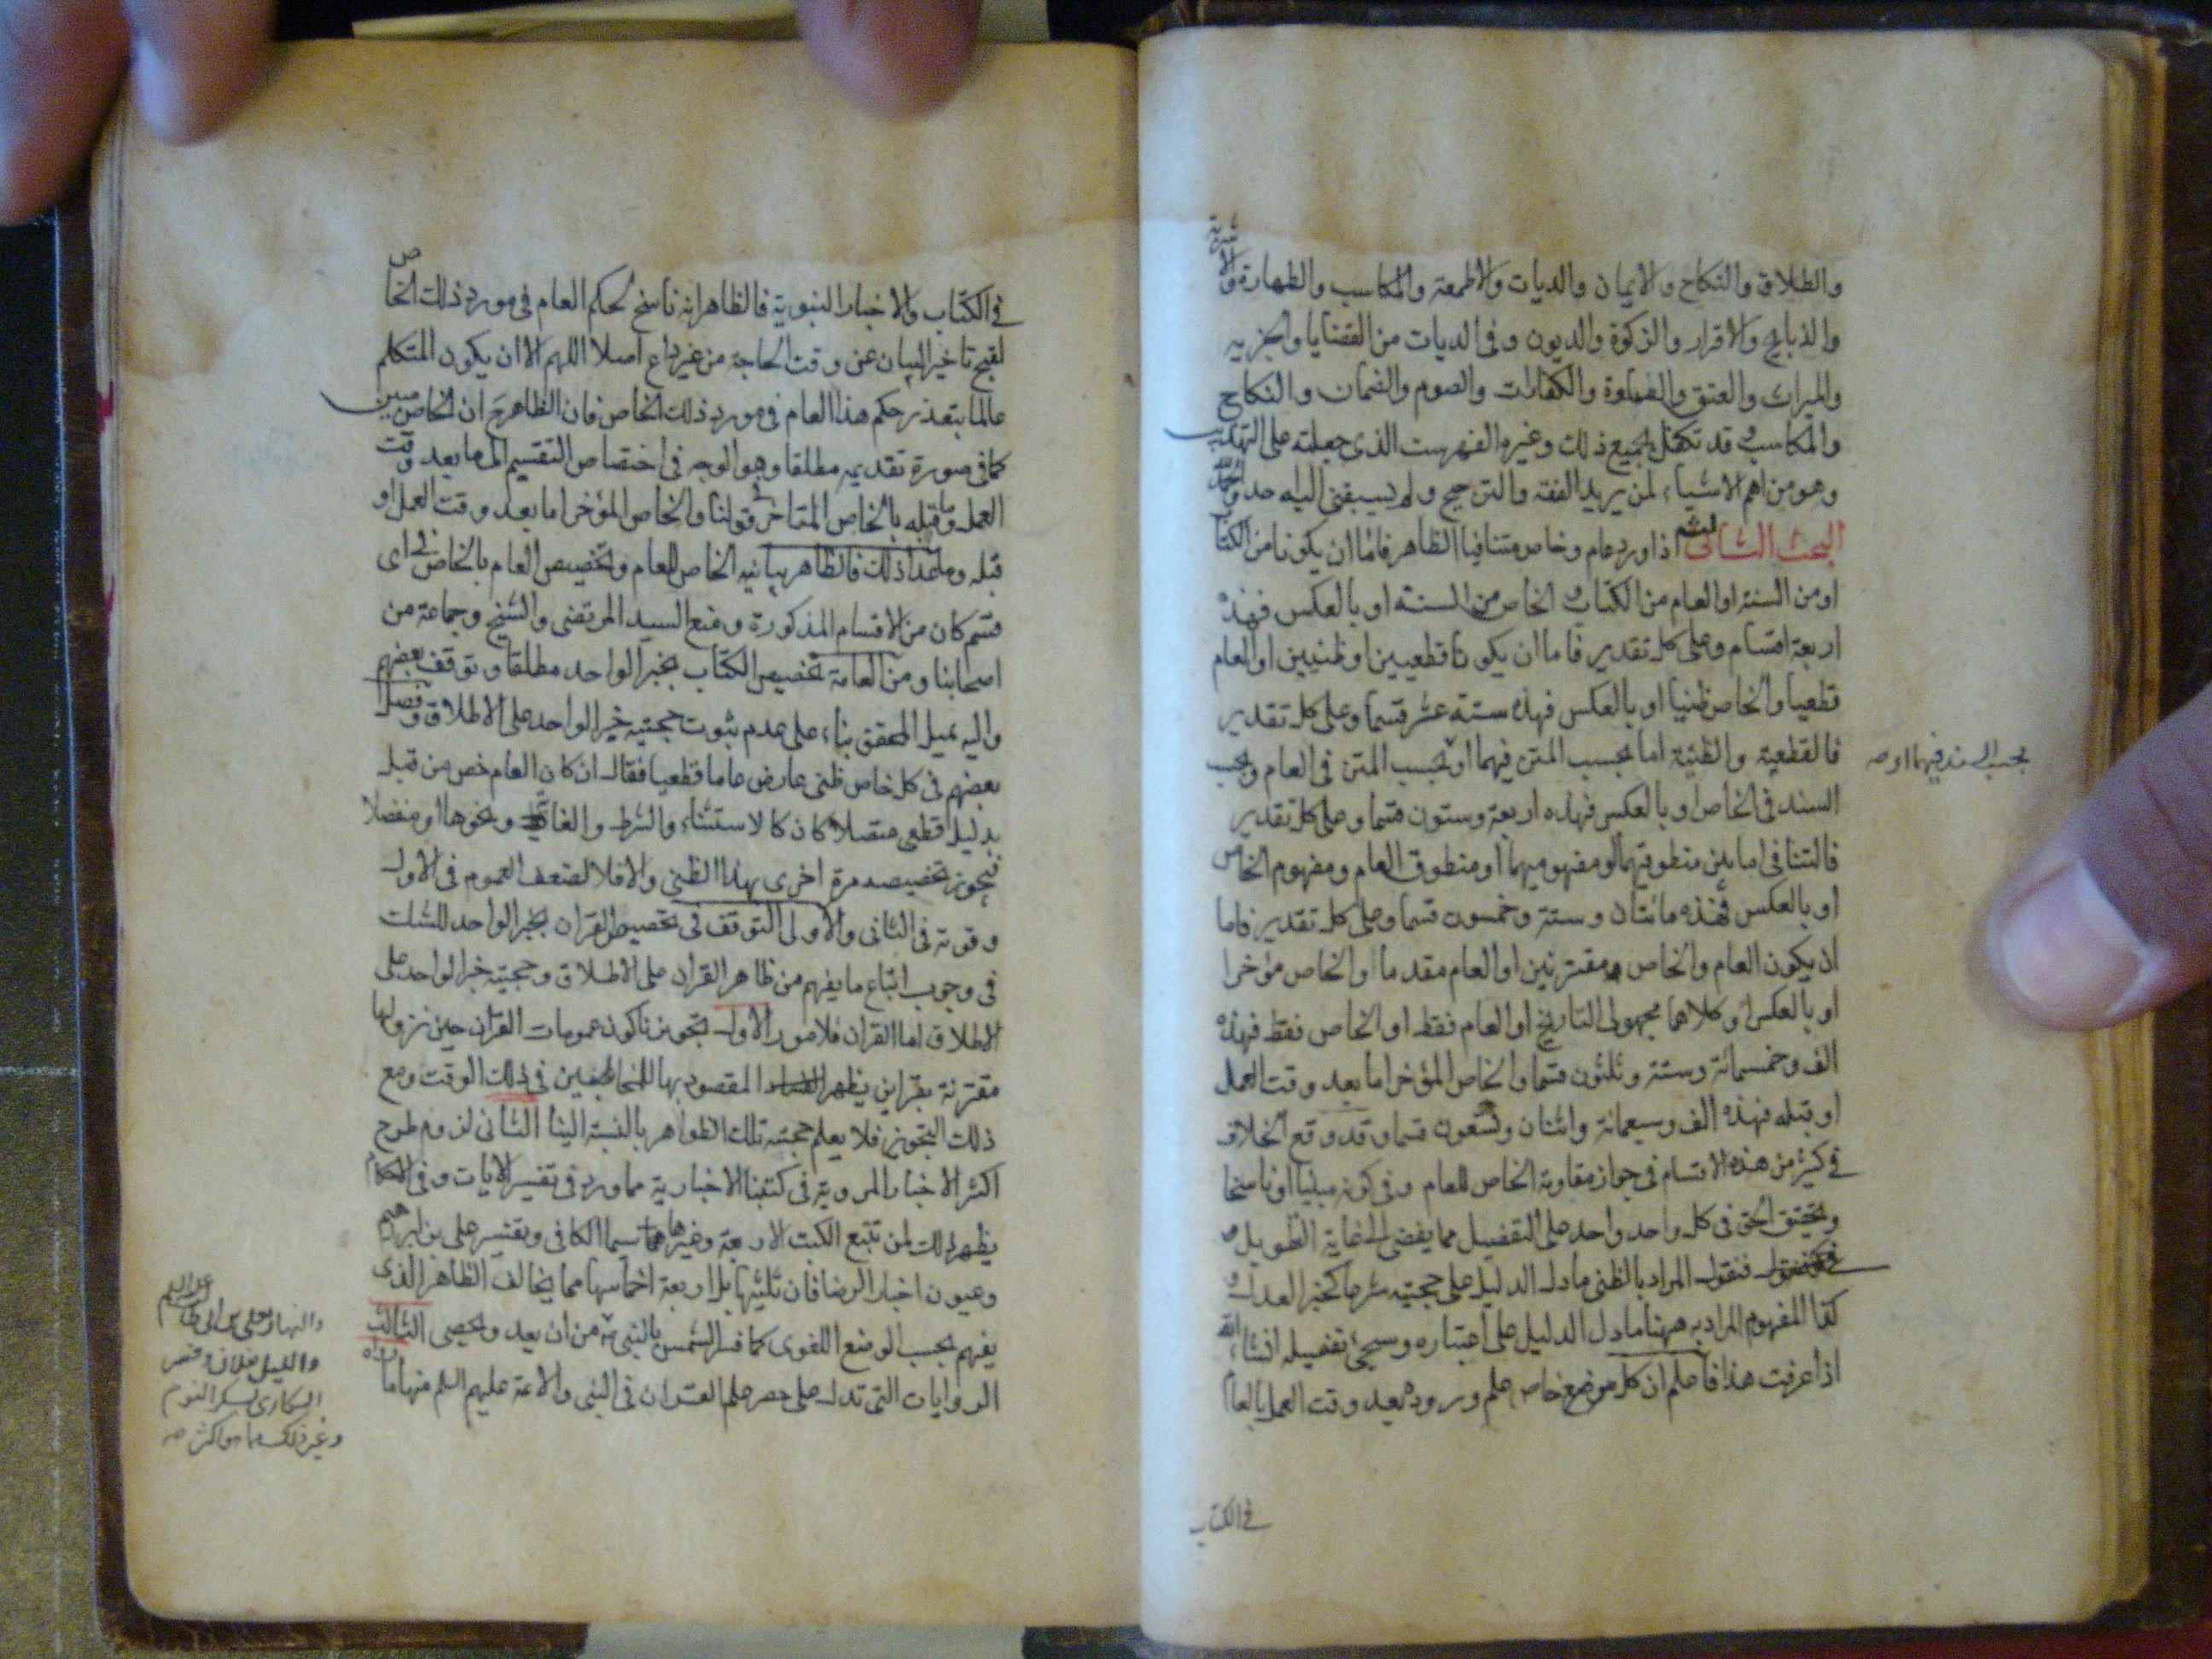 والطلاق والنكاح والايمان والديات والاطعمة والمكاسب والطهارة والاشربة
والذبايح والاقرار والزكوة والديون وفى الديات من القضايا والجزيه
والميراث والعتق والكفارات والصوم والضمان والنكاح
والمكاسب وقد تكفل بجميع ذلك وغيره الفهرست الذى جعلته على التهذيب
وهو من اهم الاشياء لمن يريد الفقه والترجيح ولم يسبقنى اليه احد والحمد لله
البحث الثانى اذا ورد عام وخاص متنافيا الظاهر فاما ان يكونا من الكتاب
او من السنة او العام من الكتاب والخاص من السنة او بالعكس فهذه
اربعة اقسام وعلى كل تقدير فاما ان يكونا قطعيين او ظنيين او العام
قطعيا والخاص ظنيا او بالعكس فهذه ستة عشر قسما وعلى كل تقدير
فالقطعية والظنية اما بحسب المتن فيهما او بحسب المتن فى العام وبحسب
بحسب السند فيهما او صه
السند فى الخاص او بالعكس فهذه اربعة وستون قسما وعلى كل تقدير
فالتنافى اما بين منطوقيهما او مفهوميهما او منطوق العام ومفهوم الخاص
او بالعكس فهذه مائتان وستة وخمسون قسما وعلى كل تقدير فاما
ان يكون العام والخاص مقترنين او العام مقدما والخاص مؤخرا
او بالعكس او كلاهما مجهولى التاريخ او العام فقط او الخاص فقط فهذه
الف وخمسمائة وستة وثلثون قسما والخاص المؤخر اما بعد وقت العمل
او قبله فهذه الف وسبعمائة واثنان وتسعون قسما وقد وقع الخلاف
فى كثير من هذه الاقسام فى جواز مقاومة الخاص للعام وفى كونه مبينا او ناسخا
وتحقيق الحق فى كل واحد واحد على التفصيل مما يفضى الى غاية التطويل
فنقول المراد بالظنى ما دل الدليل على حجيته شرعا كخبر العدل و
كذا المفهوم المراد به ههنا ما دل الدليل على اعتباره وسيجئ تفصيله انشاء الله
اذا عرفت هذا فاعلم ان كل موضع خاص علم وروده بعد وقت العمل بالعام
فى الكتاب
فى الكتاب والاخبار النبوية فالظاهر انه ناسخ لحكم العام فى مورد ذلك الخاص
لقبح تاخير البيان عن وقت الحاجة من غير داع اصلا اللهم الا ان يكون المتكلم
عالما بتعذر حكم هذا العام فى مورد ذلك الخاص فان الظاهر ح ان الخاص مبين
كما فى صورة تقديمه مطلقا وهو الوجه فى اختصاص التقسيم الى ما بعد وقت
العمل وما قبله بالخاص المتاخر فى قولنا والخاص المؤخر اما بعد وقت العمل او
قبله وما عدا ذلك فالظاهر مباينيه الخاص للعام وتخصيص العام بالخاص فى اى
قسم كان من الاقسام المذكورة ومنع السيد المرتضى والشيخ وجماعة من
اصحابنا ومن العامة تخصيص الكتاب بخبر الواحد مطلقا وتوقف بعضهم
واليه يميل المحقق بناء على عدم ثبوت حجيته خبر الواحد على الاطلاق وفصل
بعضهم فى كل خاص ظنى عارض عاما قطعيا فقال ان كان العام خص من قبل
بدليل قطعى متصلا كان كالاستثناء والشرط والغاية ونحوها او منفصلا
فيجوز تخصيصه مرة اخرى بهذا الظنى والا فلا لضعف العموم فى الاول
وقوته فى الثانى والاولى التوقف فى تخصيص القران بخبر الواحد للشك
فى وجوب اتباع ما يفهم من ظاهر القران على الاطلاق وحجيته خبر الواحد على
الاطلاق اما القران فلامور الاول تجويزنا كون عمومات القران حين نزولها
مقترنة بقراين يظهر المقصود بها للمخاطبين فى ذلك الوقت ومع
ذلك التجويز فلا يعلم حجيته تلك الظواهر بالنسبة الينا الثانى لزوم طرح
اكثر الاخبار المروية فى كتبنا الاخبارية مما ورد فى تفسير الايات وفى الاحكام
يظهر ذلك لمن تتبع الكتب الاربعة وغيرها سيما الكافى وتفسير على بن ابراهيم
وعيون اخبار الرضا فان ثلثيها بل اربعة اخماسها مما يخالف الظاهر الذى
يفهم بحسب الوضع اللغوى كما فسر الشمس بالنبى من ان يعد ويحصى الثالث
الروايات التى تدل على حصر علم القران فى النبى والائمة عليهم السلم منها ما رواه
والنهار بعلى بن ابى طالب عليه السلم
والليل بفلان وفسر
السكارى بسكر النوم
وغير ذلك مما هو اكثر صه